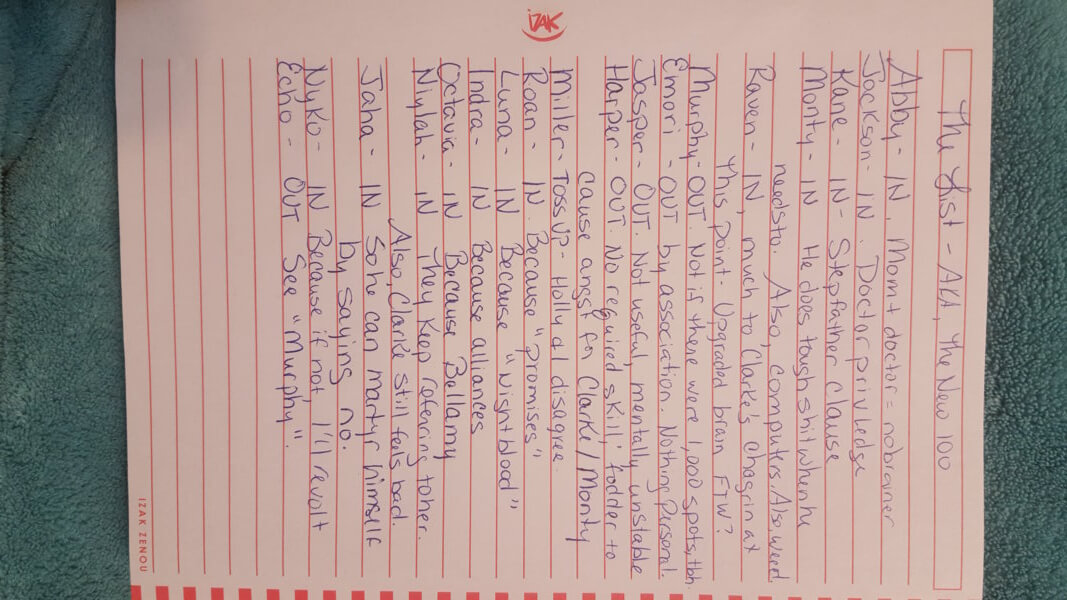 The List - AKA, The New 100
Abby - IN, Mom + doctor = nobrainer
Jackson - IN. Doctor priviledge
Kane - IN - Stepfather Clause
Monty - IN He does tough shit when he
needs to. Also, computers. Also, weed
Raven - IN, much to Clarke's chagrin at
this point - Upgraded brain FTW?
Murphy - OUT. Not if there were 1,000 spots, tbh.
Emori - OUT by association. Nothing Personal.
Jasper - OUT. Not useful, mentally unstable
Harper - OUT. No required skill; fodder to
cause angst for Clarke/Monty
Miller - Toss up - Holly & I disagree.
Roan - IN. Because "promises"
Luna - IN Because "Nightblood"
Indra - IN Because alliances
Octavia - IN Because Bellamy
Niylah - IN They keep refencing to her.
Also, Clarke still feels bad.
Jaha - IN So he can martyr himself
by saying no.
Nyko - IN Because if not, I'll revolt
Echo - OUT See "Murphy".
IZAK
IZAK ZENOU